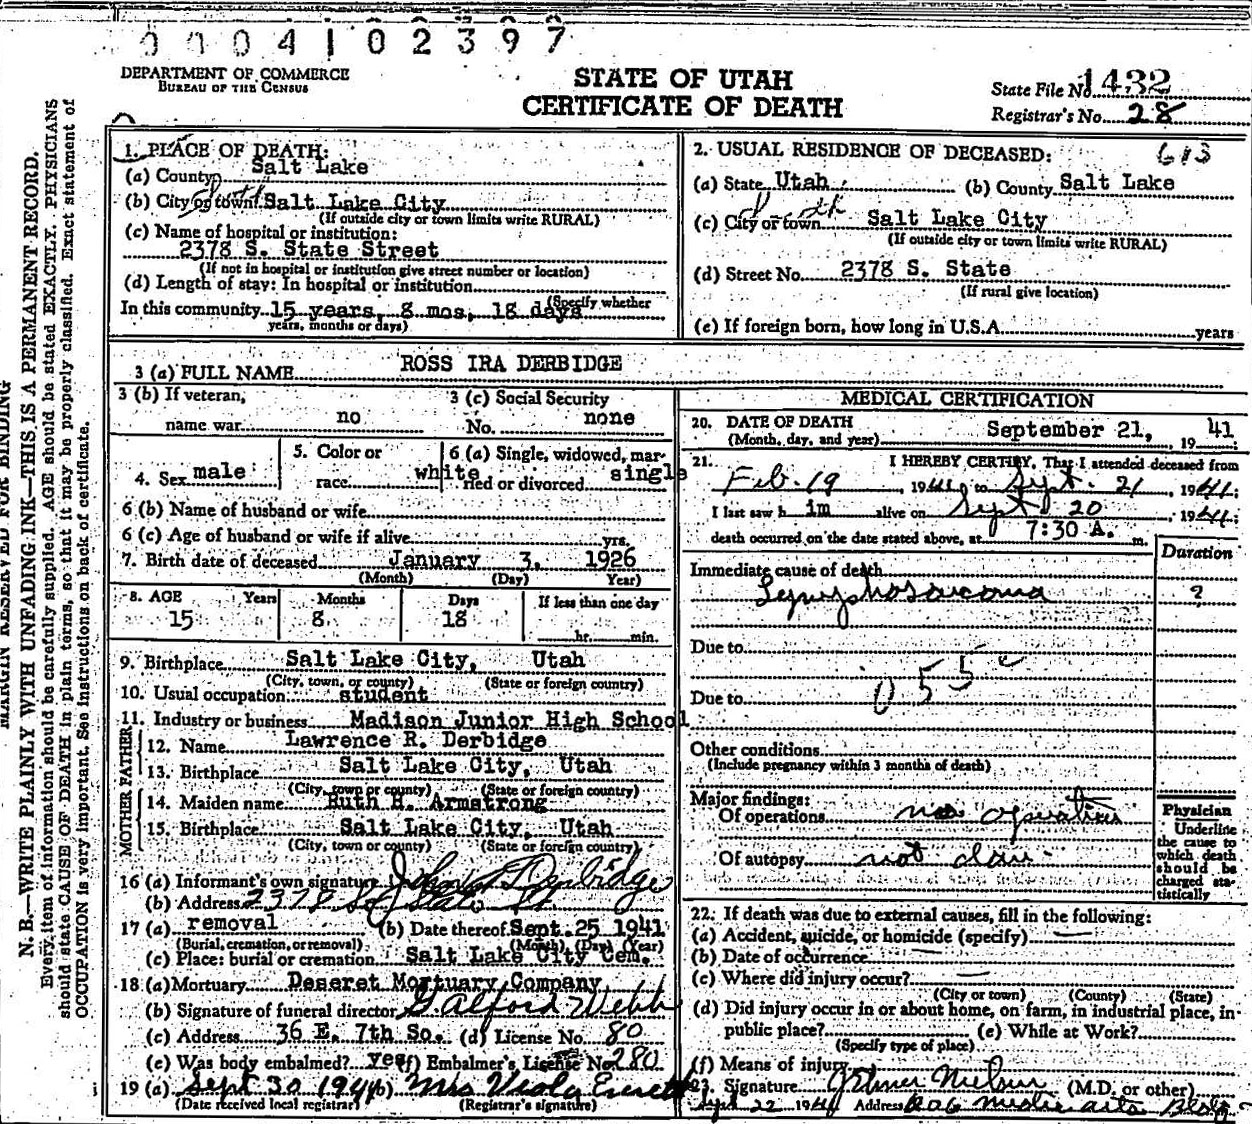 0 0 0 4 1 0 2 3 9 7
DEPARTMENT OF COMMERCE
BUREAU OF THE CENSUS
STATE OF UTAH
CERTIFICATE OF DEATH
State File No. 1432
Registrar's No. 28
MARGIN RESERVED FOR BINDING
N. B.—WRITE PLAINLY WITH UNFADING INK—THIS IS A PERMANENT RECORD.
Every item of information should be carefully supplied. AGE should be stated EXACTLY. PHYSICIANS
should state CAUSE OF DEATH in plain terms, so that it may be properly classified. Exact statement of
OCCUPATION is very important. See instructions on back of certificate.
1. PLACE OF DEATH:
(a) County Salt Lake
(b) City or town South Salt Lake City
(If outside city or town limits write RURAL)
(c) Name of hospital or institution:
2378 S. State Street
(If not in hospital or institution give street number or location)
(d) Length of stay: In hospital or institution
(Specify whether
In this community 15 years, 8 mos, 18 days
years, months or days)
2. USUAL RESIDENCE OF DECEASED: 613
(a) State Utah (b) County Salt Lake
(c) City or town South Salt Lake City
(If outside city or town limits write RURAL)
(d) Street No. 2378 S. State
(If rural give location)
(e) If foreign born, how long in U.S.A. years
3 (a) FULL NAME ROSS IRA DERBIDGE
3 (b) If veteran,
name war no
3 (c) Social Security
No. none
4. Sex male
5. Color or
race white
6 (a) Single, widowed, mar-
ried or divorced single
6 (b) Name of husband or wife
6 (c) Age of husband or wife if alive yrs.
7. Birth date of deceased January 3, 1926
(Month) (Day) Year)
8. AGE Years Months Days If less than one day
15 8 18 hr. min.
9. Birthplace Salt Lake City, Utah
(City, town, or county) (State or foreign country)
10. Usual occupation student
11. Industry or business Madison Junior High School
FATHER
12. Name Lawrence R. Derbidge
13. Birthplace Salt Lake City, Utah
(City, town or county) (State or foreign country)
MOTHER
14. Maiden name Ruth H. Armstrong
15. Birthplace Salt Lake City, Utah
(City, town or county) (State or foreign country)
16 (a) Informant's own signature John Derbidge
(b) Address 2378 So State St
17 (a) removal (b) Date thereof Sept. 25 1941
(Burial, cremation, or removal) (Month) (Day) (Year)
(c) Place: burial or cremation Salt Lake City Cem.
18 (a) Mortuary Deseret Mortuary Company
(b) Signature of funeral director G. Alford Webb
(c) Address 36 E. 7th So. (d) License No. 80
(e) Was body embalmed? yes (f) Embalmer's License No. 280
19 (a) Sept 30 1941 (b) Mrs Viola Everett
(Date received local registrar) (Registrar's signature)
MEDICAL CERTIFICATION
20. DATE OF DEATH
(Month, day, and year) September 21, 1941
21. I HEREBY CERTIFY, That I attended deceased from
Feb. 19, 1941 to Sept. 21, 1941;
I last saw h im alive on Sept 20, 1941;
death occurred on the date stated above, at 7:30 A. m.
Duration
Immediate cause of death
Lymphosarcoma ?
Due to
055e
Due to
Other conditions
(Include pregnancy within 3 months of death)
Major findings:
Of operations no operation
Of autopsy not done
Physician
Underline
the cause to
which death
should be
charged sta-
tistically
22. If death was due to external causes, fill in the following:
(a) Accident, suicide, or homicide (specify) —
(b) Date of occurrence
(c) Where did injury occur? —
(City or town) (County) (State)
(d) Did injury occur in or about home, on farm, in industrial place, in
public place? (e) While at Work?
(Specify type of place)
(f) Means of injury
23. Signature (M.D. or other)
Sept 22 1941 Address Medic Arts Bldg